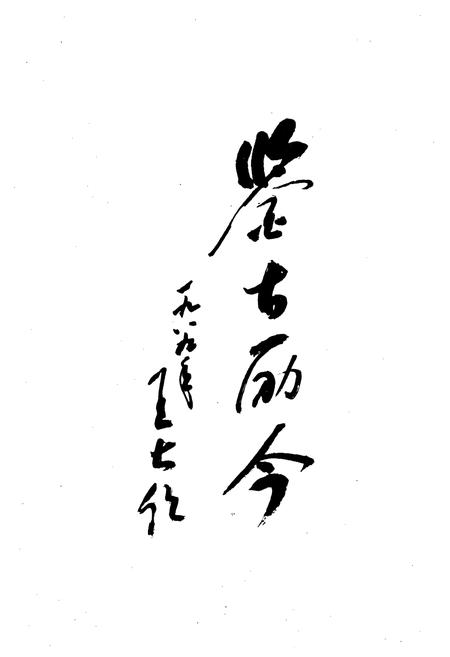 鉴古励今
一九八九年
王大任